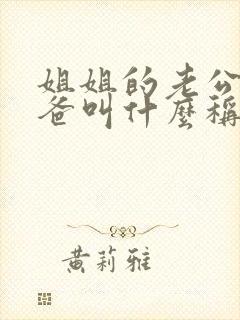 姐姐的老公
爸叫什麼稱
黄莉雅